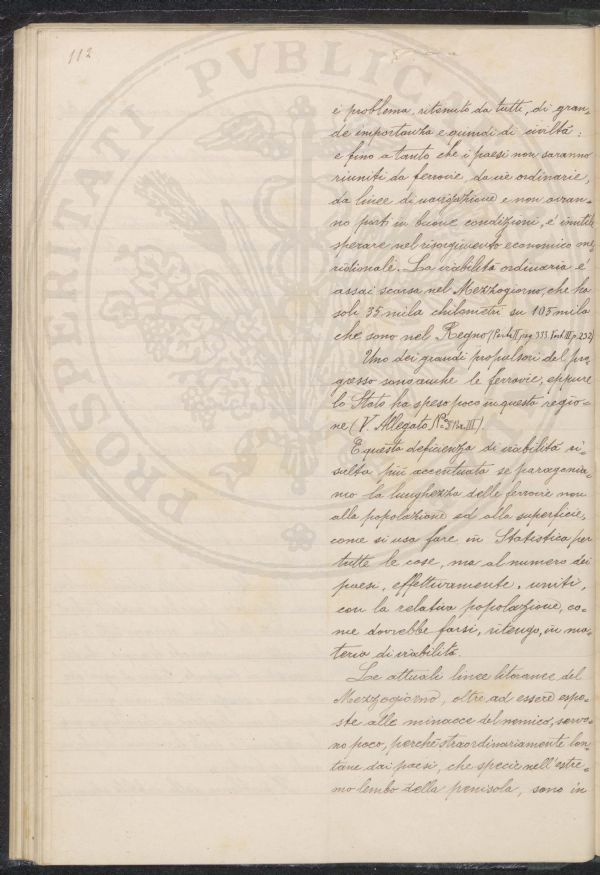 112
PROSPERITATI PVBLICAE
è problema, ritenuto da tutti, di gran-
de importanza e quindi di civiltà;
e fino a tanto che i paesi non saranno
riuniti da ferrovie, da vie ordinarie,
da linee di navigazione e non avran-
no porti in buone condizioni, è inutile
sperare nel risorgimento economico me-
ridionale. La viabilità ordinaria è
assai scarsa nel Mezzogiorno, che ha
soli 35 mila chilometri su 105 mila
che sono nel Regno (Parte II pag. 333. Vol. III p. 232)
Uno dei grandi propulsori del pro-
gresso sono anche le ferrovie, eppure
lo Stato ha speso poco in questa regio-
ne (V. Allegato N.
E questa deficienza di viabilità ri-
sulta più accentuata se paragonia-
mo la lunghezza delle ferrovie non
alla popolazione ed alla superficie,
come si usa fare in Statistica per
tutte le cose, ma al numero dei
paesi, effettivamente, uniti,
con la relativa popolazione, co-
me dovrebbe farsi, ritengo, in ma-
teria di viabilità.
Le attuali linee litoranee del
Mezzogiorno, oltre ad essere espo-
ste alle minacce del nemico, servo-
no poco, perché straordinariamente lon-
tane dai paesi, che specie nell'estre-
mo lembo della penisola, sono in